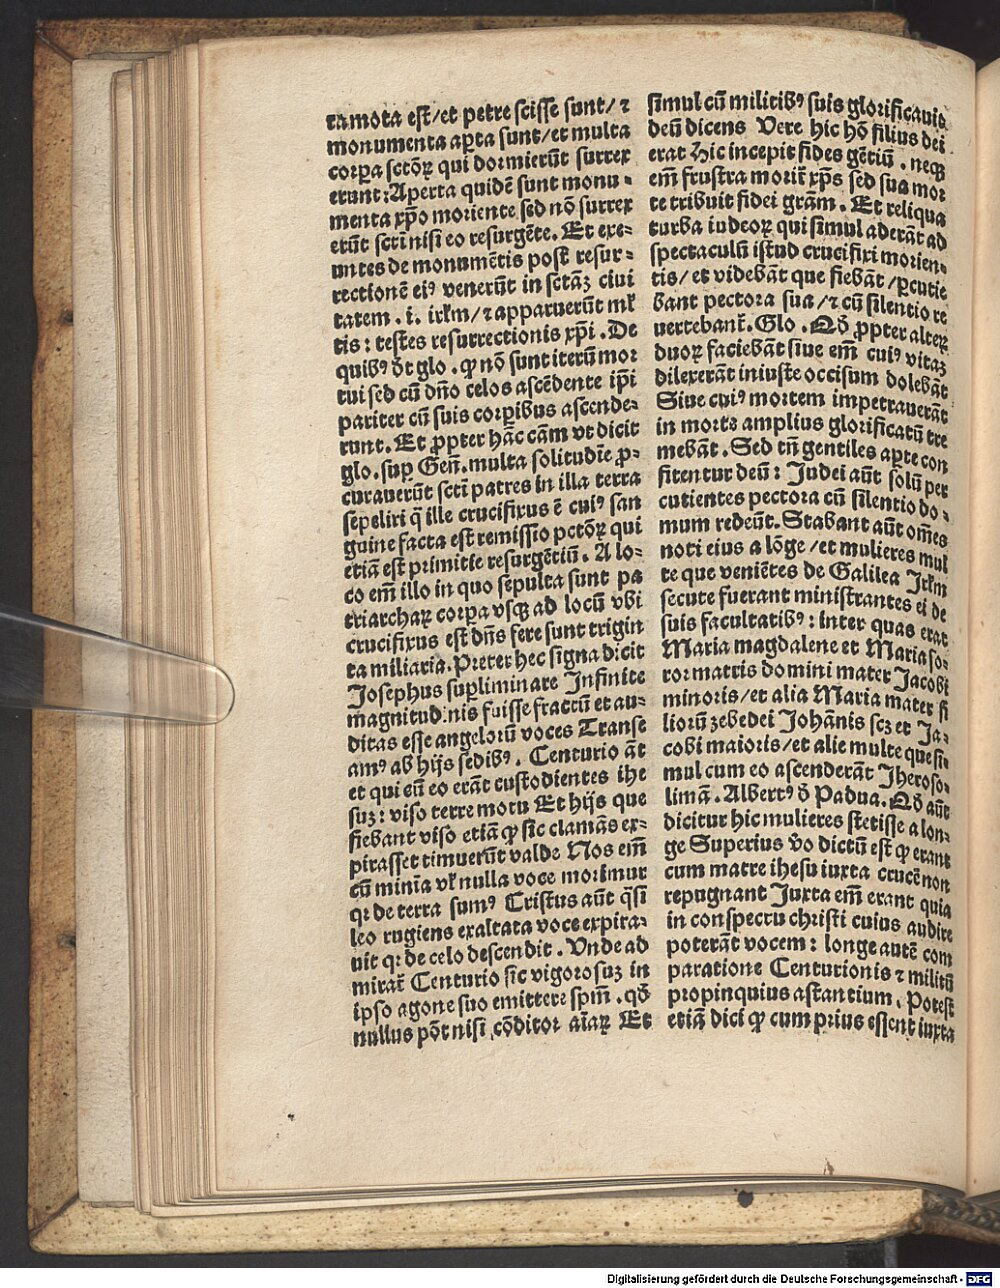 ra mota est/et petre scisse sunt/ ⁊
monumenta aꝑta sunt/et multa
corꝑa sctōꝝ qui dormierūt surrex
erunt: Aperta quidē sunt monu⸗
menta xp̄o moriente sed nō surrex
erūt scti nisi eo resurgēte. Et exe⸗
untes de monumētis post resur⸗
rectionē eiꝰ venerūt in sctāꝫ ciui
tatem . i. irlm̄/ ⁊ apparuerūt ml̄
tis: testes resurrectionis xp̄i . De
quibꝰ dt̄ glo . ꝙ nō sunt iterū mor
tui sed cū dn̄o celos ascēdente ip̄i
pariter cū suis corꝑibus ascende⸗
runt. Et ꝓpter hāc cām vt dicit
glo. suꝑ Gen̄. multa solitudīe ꝓ⸗
curauerūt scti patres in illa terra
sepeliri q̄ ille crucifixus ē cuiꝰ san
guine facta est remissio pctōꝝ qui
etiā est primitie resurgētiū. A lo⸗
co em̄ illo in quo sepulta sunt pa
triarchaꝝ corꝑa vsqꝫ ad locū vbi
crucifixus est dn̄s fere sunt trigin
ta miliaria. Preter hec signa dicit
Josephus suꝑliminare Infinite
magnitudinis fuisse fractū et au⸗
ditas esse angelorū voces Transe
amꝰ ab hijs sedibꝰ. Centurio āt
et qui cū eo erāt custodientes ihe
suꝫ: viso terre motu Et hijs que
fiebant viso etiā ꝙ sic clamās ex⸗
pirasset timuerūt valde Nos em̄
cū minīa vl̄ nulla voce morimur
qꝛ de terra sumꝰ Cristus aūt q̄si
leo rugiens exaltata voce expira⸗
uit qꝛ de celo descendit. Vnde ad
mirat̄ Centurio sic vigorosuꝫ in
ipso agone suo emittere spm̄ . qd̄
nullus pōt nisi cōditor aīaꝝ Et
simul cū militibꝰ suis glorificauit
deū dicens Vere hic hō filius dei
erat Hic incepit fides gētiū . neqꝫ
em̄ frustra morit̄ xp̄s sed sua mor
te tribuit fidei grām. Et reliqua
turba iudeoꝝ qui simul aderāt ad
spectaculū istud crucifixi morien⸗
tis/ et videbāt que fiebāt/ ꝑcutie
bant pectora sua/ ⁊ cū silentio re
uertebant̄. Glo . Qd̄ ꝓpter alteꝝ
duoꝝ faciebāt siue em̄ cuiꝰ vitaꝫ
dilexerāt iniuste occisum dolebāt
Siue cuiꝰ mortem impetrauerāt
in morte amplius glorificatū tre
mebāt . Sed tn̄ gentiles aꝑte con
fitentur deū: Judei aūt solū per
cutientes pectora cū silentio do⸗
mum redeūt. Stabant aūt om̄es
noti eius a lōge /et mulieres mul
te que veniētes de Galilea Irlm̄
secute fuerant ministrantes ei de
suis facultatibꝰ: inter quas erat
Maria magdalene et Maria so⸗
ror matris domini mater Jacobi
minoris/et alia Maria mater fi
liorū zebedei Johānis scꝫ et Ja⸗
cobi maioris/et alie multe que si⸗
mul cum eo ascenderāt Jheroso⸗
limā. Albertꝰ d̄ Padua. Qd̄ aūt
dicitur hic mulieres stetisse a lon⸗
ge Superius v̄o dictū est ꝙ erant
cum matre ihesu iuxta crucē non
repugnant Juxta em̄ erant quia
in conspectu christi cuius audire
poterāt vocem: longe autē com
paratione Centurionis ⁊ militū
propinquius astantium. Potest
etiā dici ꝙ cum prius essent iuxta
Digitalisierung gefördert durch die Deutsche Forschungsgemeinschaft - DFG